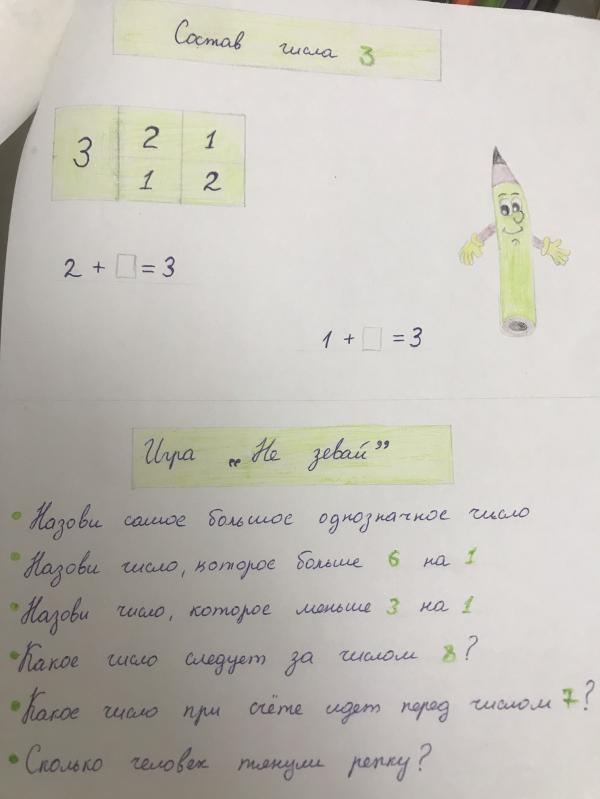 Состав числа 3
3 2 1
1 2
2 + □ = 3
1 + □ = 3
Игра „Не зевай”
• Назови самое большое однозначное число
• Назови число, которое больше 6 на 1
• Назови число, которое меньше 3 на 1
• Какое число следует за числом 8?
• Какое число при счёте идет перед числом 7?
• Сколько человек тянули репку?